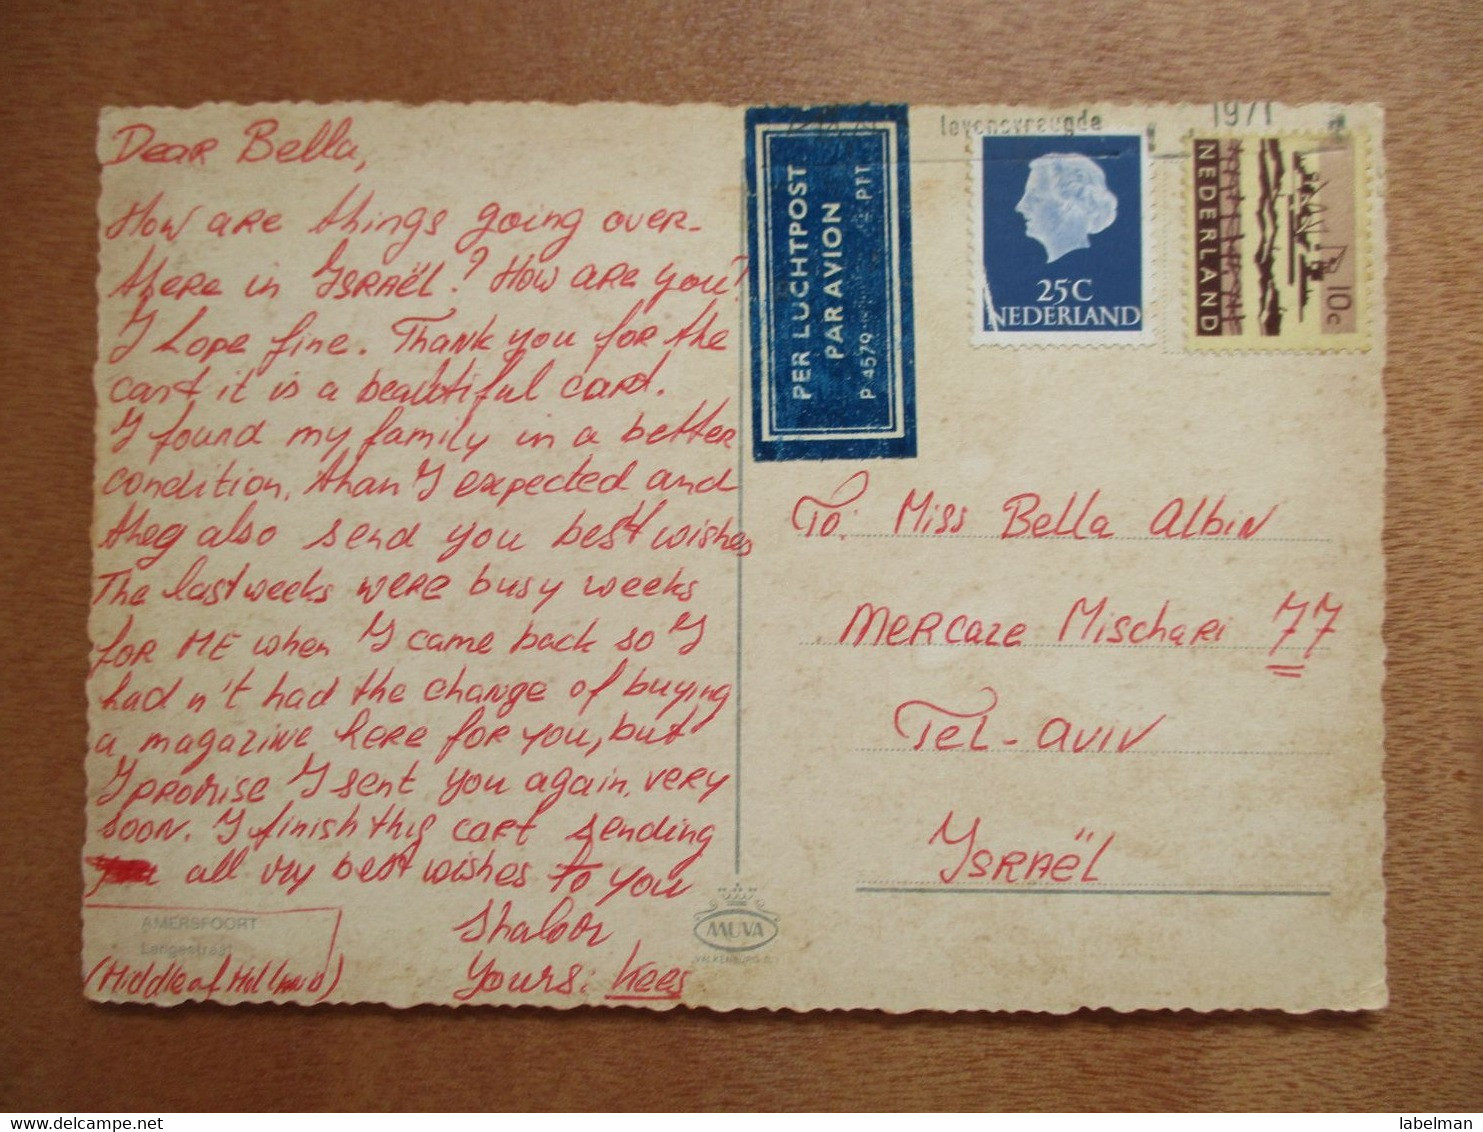 Dear Bella,
How are things going over-
there in Ysraël? How are you?
I hope fine. Thank you for the
cart it is a beautiful card.
I found my family in a better
condition, than I expected and
they also send you best wishes
The last weeks were busy weeks
for me when I came back so I
had n't had the change of buying
a magazine here for you, but
I promise I sent you again, very
soon. I finish this cart sending
all my best wishes to you
Shalom
Yours: Kees
AMERSFOORT
Langestraat
(Middle of Holland)
MUVA
VALKENBURG
PER LUCHTPOST
PAR AVION
P 4579
PTT
levensvreugde
1971
25C
NEDERLAND
NEDERLAND
10c
To: Miss Bella Albin
Mercaze Mischari 77
Tel-Aviv
Ysraël
labelman
www.delcampe.net